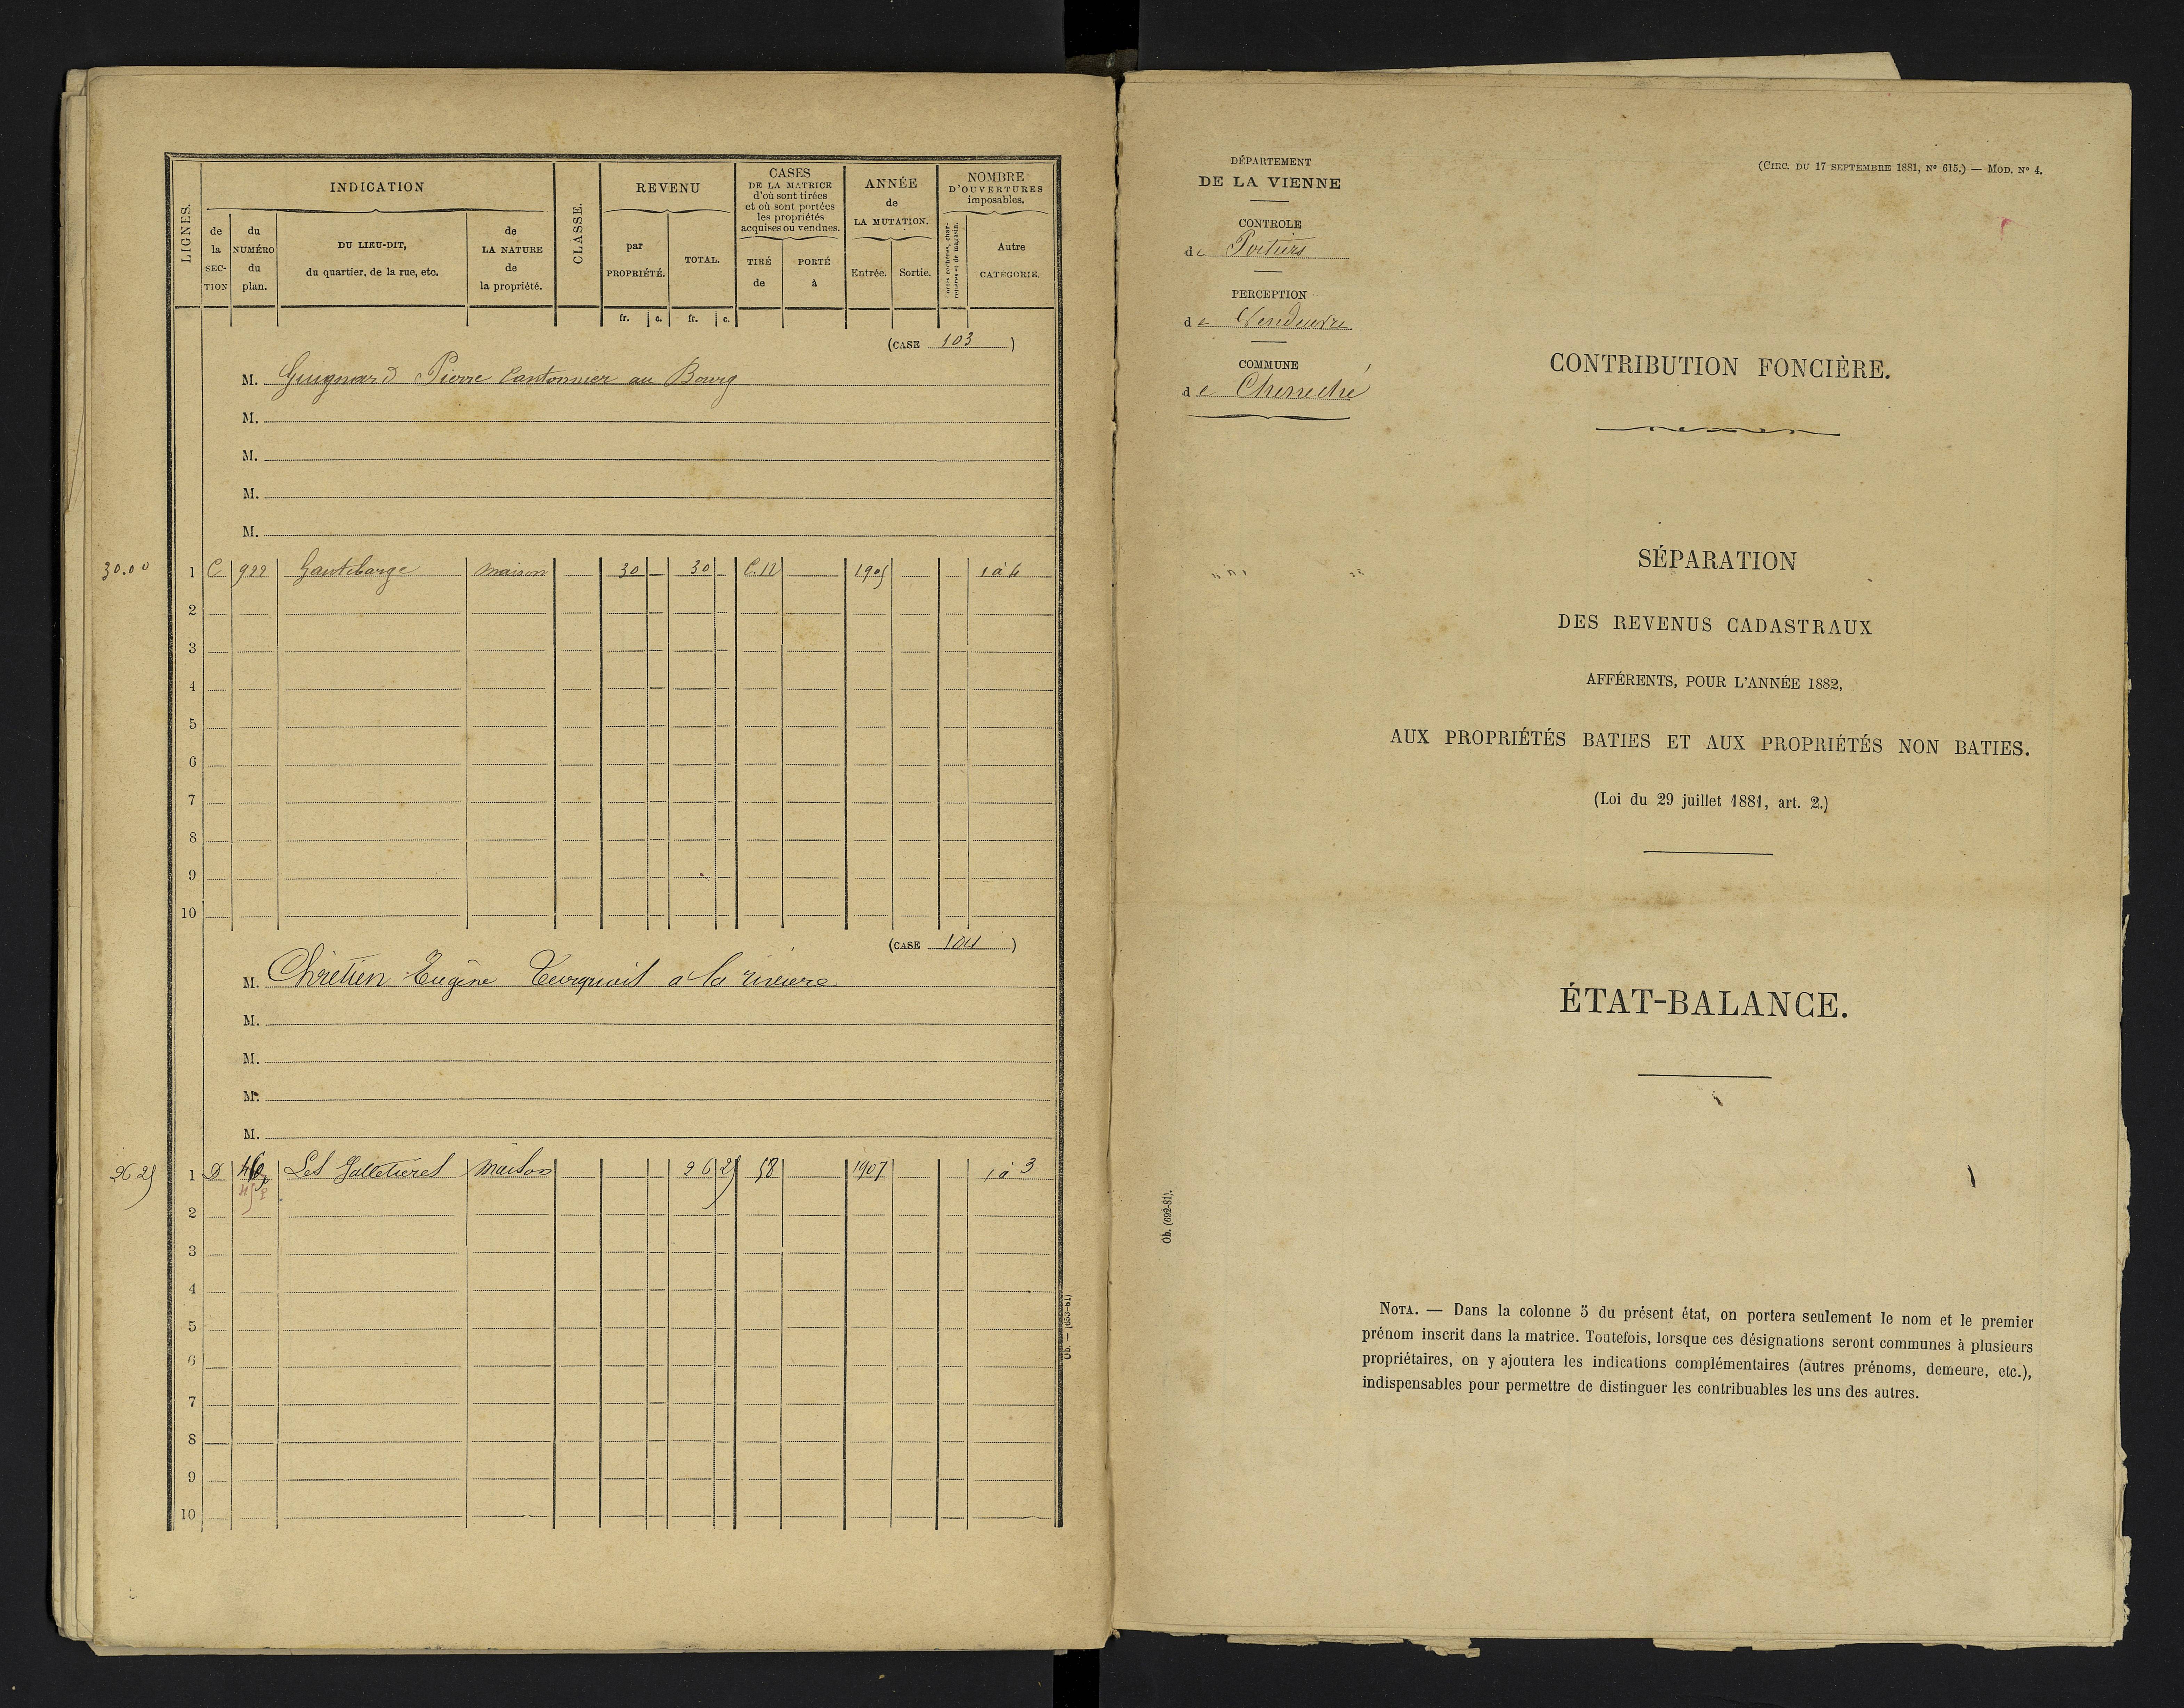 LIGNES.
INDICATION
de la SECTION
du NUMÉRO du plan.
DU LIEU-DIT, du quartier, de la rue, etc.
de LA NATURE de la propriété.
CLASSE.
REVENU
par PROPRIÉTÉ.
TOTAL.
fr. c. fr. c.
CASES DE LA MATRICE d'où sont tirées et où sont portées les propriétés acquises ou vendues.
TIRÉ de
PORTÉ à
ANNÉE de LA MUTATION.
Entrée. Sortie.
NOMBRE D'OUVERTURES imposables.
Portes cochères, charretières et de magasin.
Autre CATÉGORIE.
(CASE 103)
M. Guignard Pierre Cantonnier au Bourg
M.
M.
M.
M.
30.00 1 C 922 maison 30 30 C.12 1905 1 à 6
2
3
4
5
6
7
8
9
10
(CASE 104)
M. Chrétien Eugène a la riviere
M.
M.
M.
M.
26 25 1 D Les maison 26 25 58 1907 1 à 3
2
3
4
5
6
7
8
9
10
Ob. — (693-81)
DÉPARTEMENT
DE LA VIENNE
CONTROLE
de Poitiers
PERCEPTION
de Vendeuvre
COMMUNE
de Cheneché
(CIRC. DU 17 SEPTEMBRE 1881, N° 615.) — MOD. N° 4.
CONTRIBUTION FONCIÈRE.
SÉPARATION
DES REVENUS CADASTRAUX
AFFÉRENTS, POUR L'ANNÉE 1882,
AUX PROPRIÉTÉS BATIES ET AUX PROPRIÉTÉS NON BATIES.
(Loi du 29 juillet 1881, art. 2.)
ÉTAT-BALANCE.
Ob. (692-81).
NOTA. — Dans la colonne 5 du présent état, on portera seulement le nom et le premier
prénom inscrit dans la matrice. Toutefois, lorsque ces désignations seront communes à plusieurs
propriétaires, on y ajoutera les indications complémentaires (autres prénoms, demeure, etc.),
indispensables pour permettre de distinguer les contribuables les uns des autres.